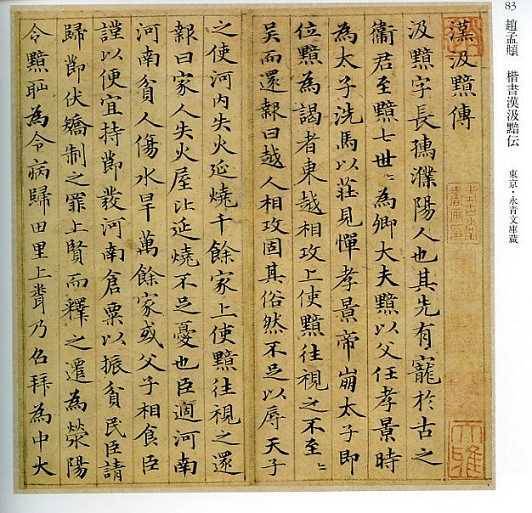 83 趙孟頫 楷書漢汲黯伝 東京・永青文庫蔵
漢汲黯傳
汲黯字長孺濮陽人也其先有寵於古之
衞君至黯七世〻為卿大夫黯以父任孝景時
為太子洗馬以莊見憚孝景帝崩太子即
位黯為謁者東越相攻上使黯往視之不至〻
吳而還報曰越人相攻固其俗然不足以辱天子
之使河内失火延燒千餘家上使黯往視之還
報曰家人失火屋比延燒不足憂也臣適河南
河南貧人傷水旱萬餘家或父子相食臣
謹以便宜持節發河南倉粟以振貧民臣請
歸節伏矯制之罪上賢而釋之遷為滎陽
令黯恥為令病歸田里上聞乃召拜為中大